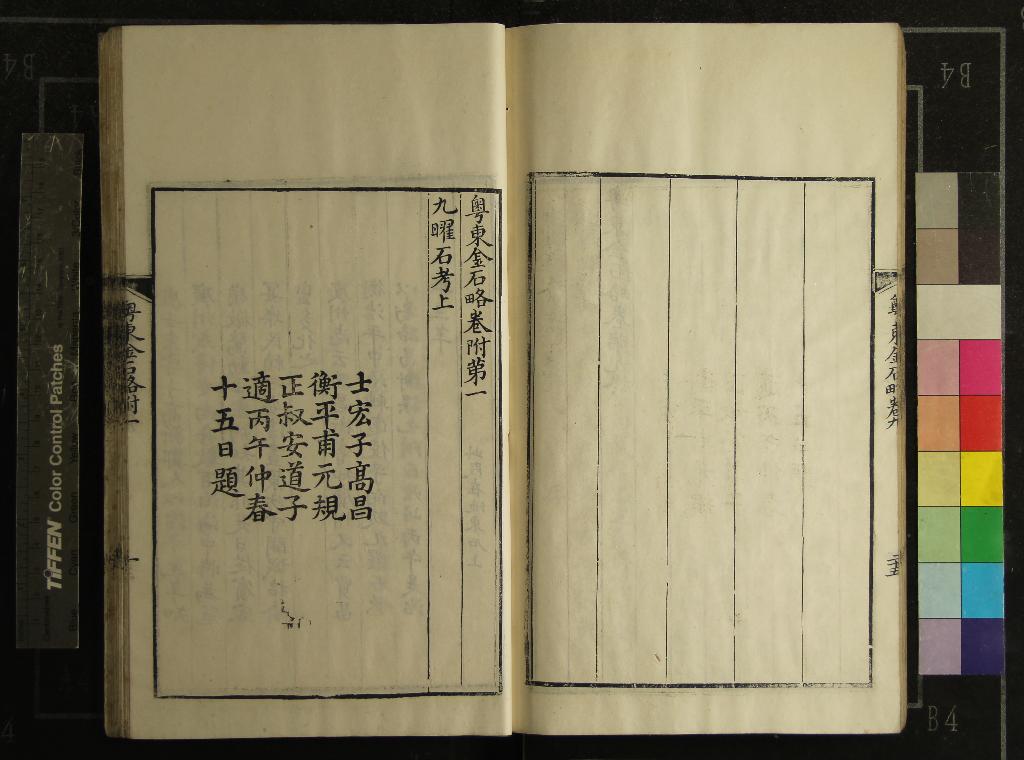 粵東金石略卷九
二十五
粵東金石略卷附第一
九曜石考上
士宏子高昌
衡平甫元規
正叔安道子
適丙午仲春
十五日題
粵東金石略附一
一
TIFFEN Color Control Patches
B4
B4
B4